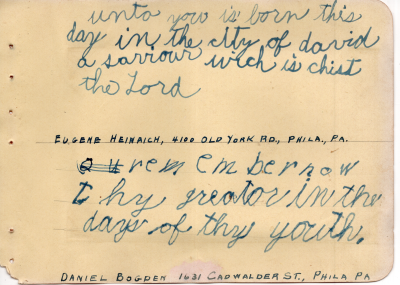 unto you is born this
day in the city of david
a saviour wich is chist
the Lord
EUGENE HEINRICH, 4100 OLD YORK RD., PHILA., PA.
remember now
thy greator in the
days of thy youth.
DANIEL BOGDEN 1631 CADWALDER ST., PHILA PA